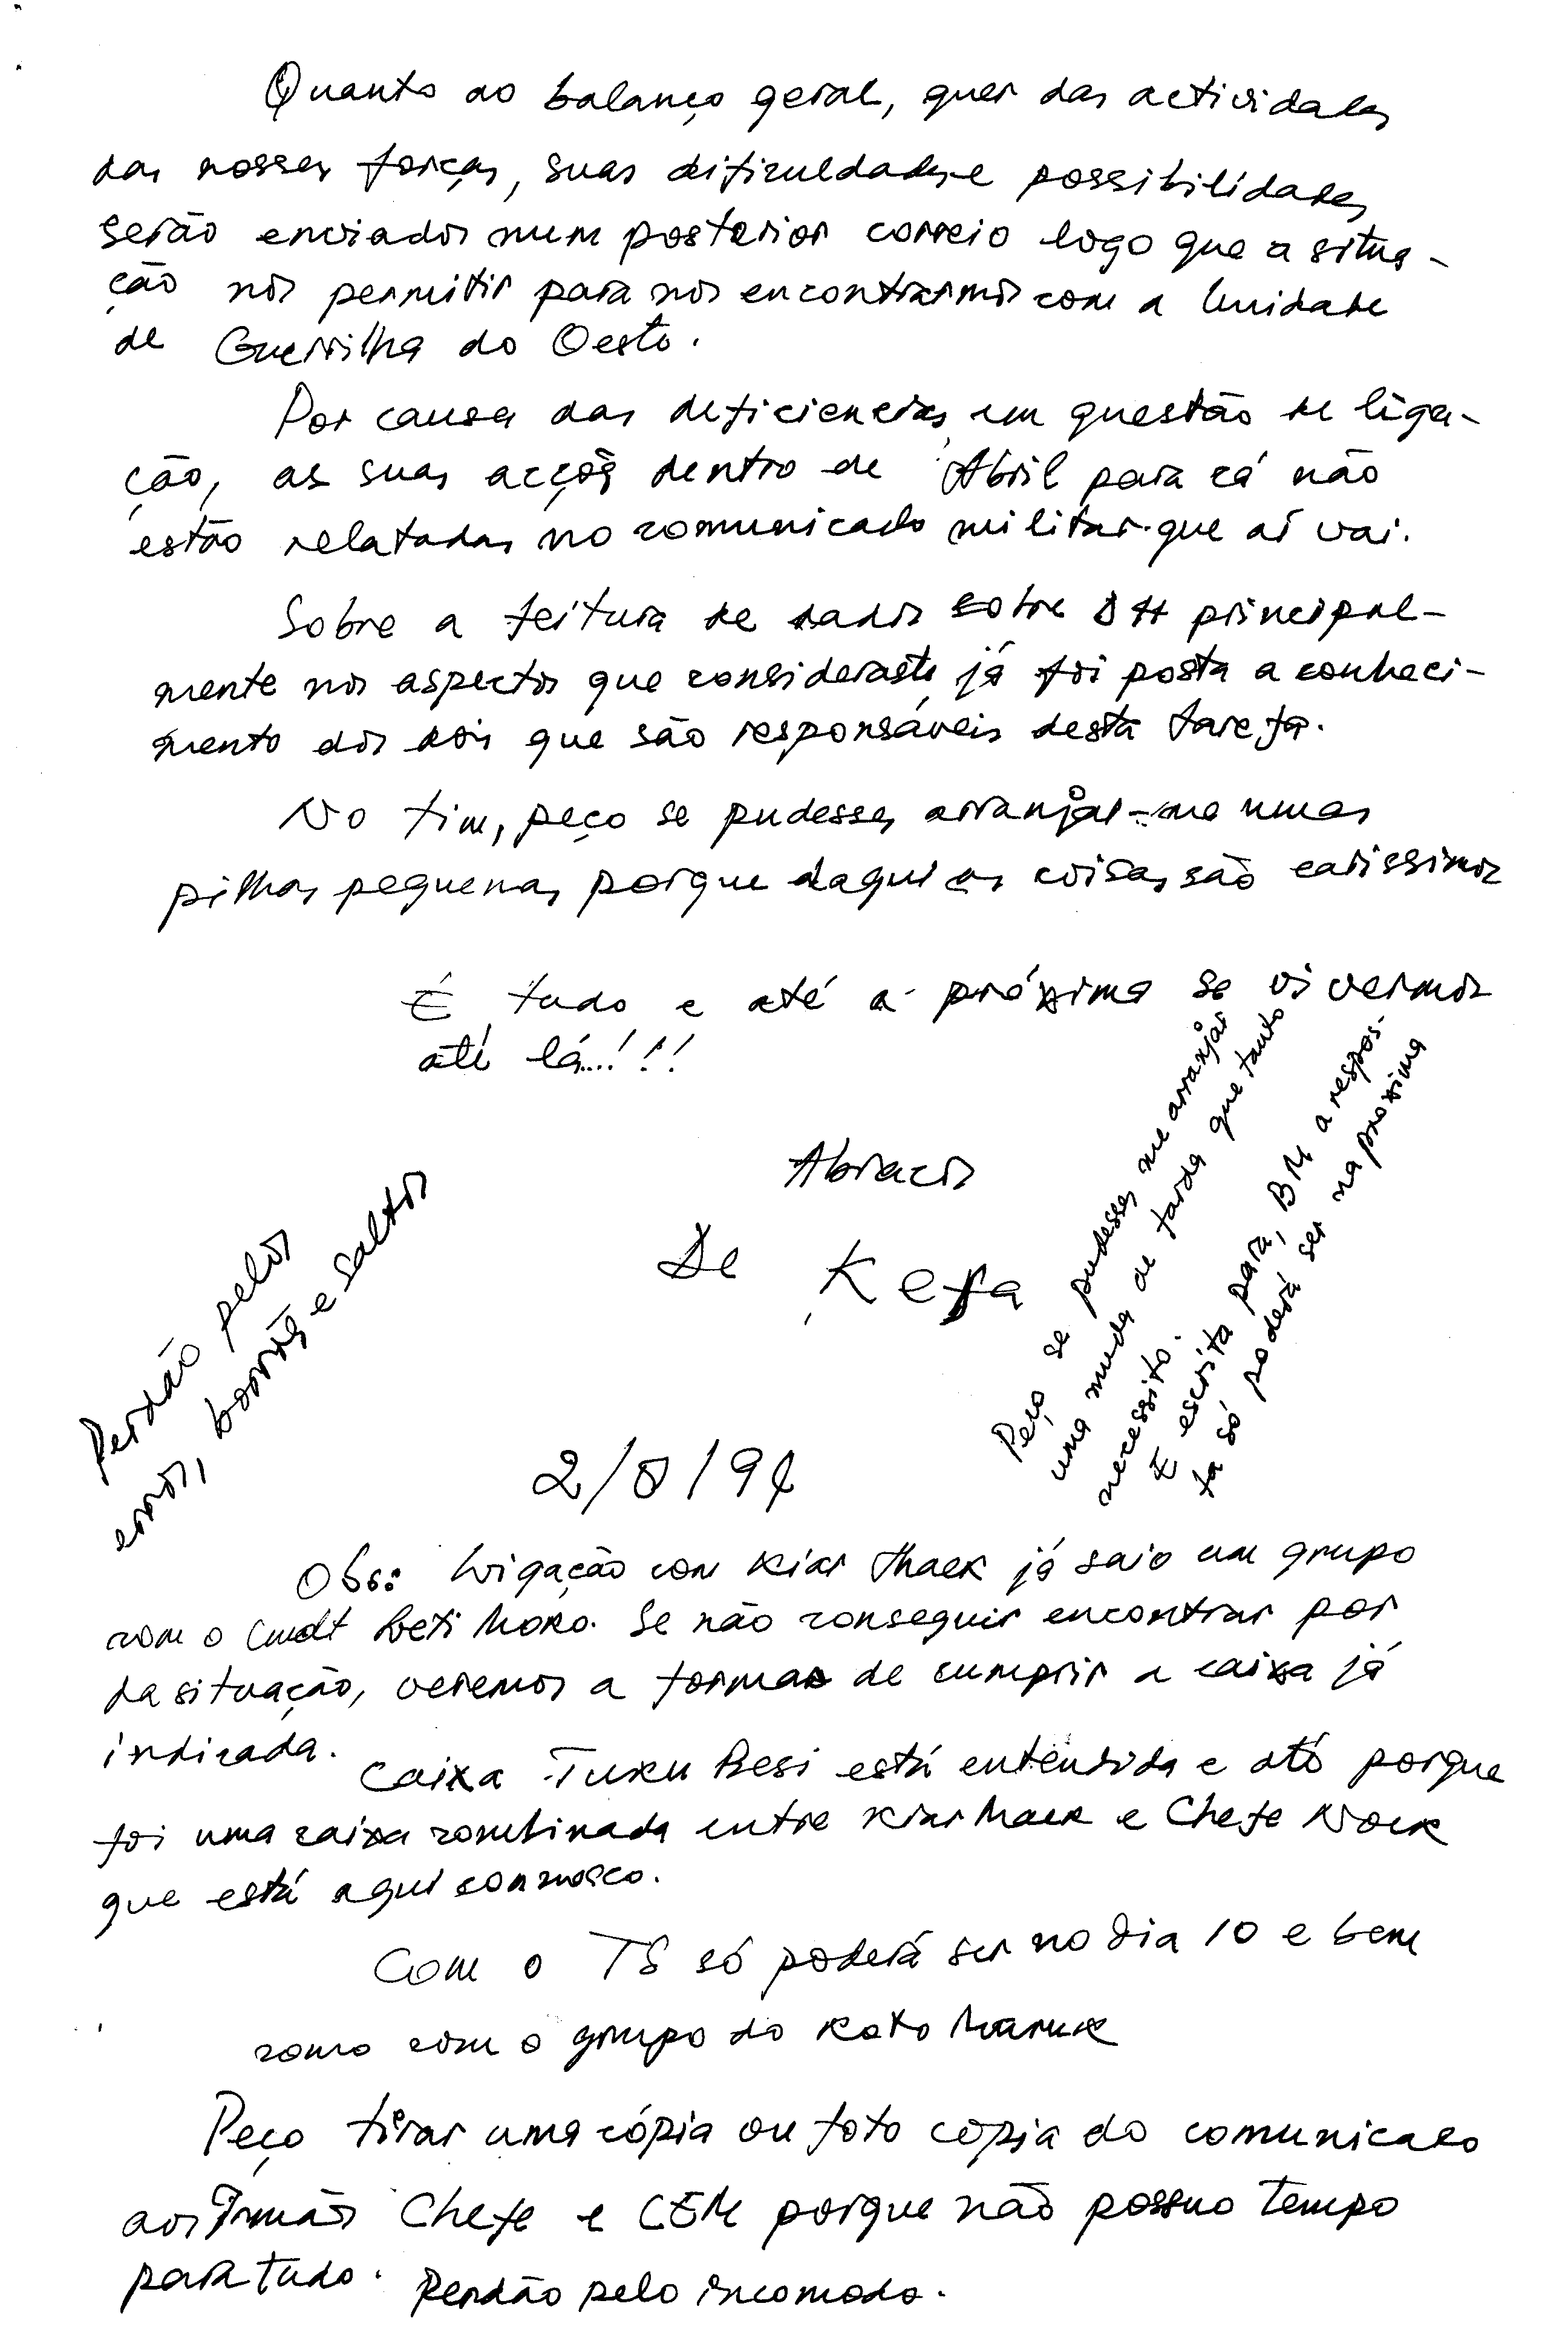 Quanto ao balanço geral, quer das actividades
das nossas forças, suas dificuldades e possibilidades,
serão enviados num posterior correio logo que a situa-
ção nos permitir para nos encontrarmos com a Unidade
de Guerrilha do Oeste.
Por causa das deficiencias em questão de liga-
ção, as suas acções dentro de Abril para cá não
estão relatadas no comunicado militar que aí vai.
Sobre a feitura de dados sobre DH principal-
mente nos aspectos que consideraste já foi posta a conheci-
mento dos dois que são responsáveis desta tarefa.
No fim, peço se pudesses arranjar-me umas
pilhas pequenas porque daqui as coisas são carissimos
É tudo e até à próxima se vivermos
até lá...!!!
Abraços
De Kefa
Peço se pudesses me arranjar
uma muda de farda que tanto
necessito.
E escrita para BM, a respos-
ta só poderá ser na proxima
Perdão pelos
erros, borrões e saltos
2/8/94
Obs: Ligação com Kiar Maek já saio um grupo
com o Cmdt Beti Moko. Se não conseguir encontrar por
da situação, veremos a forma de cumprir a caixa já
indicada.
Caixa Tuku Besi está entendida e até porque
foi uma caixa combinada entre Kiar Maek e Chefe Noek
que está aqui connosco.
Com o TS só poderá ser no dia 10 e bem
como com o grupo do Kato Maruk
Peço tirar uma cópia ou foto copia do comunicado
aos Irmãos Chefe e CEM porque não possuo tempo
para tudo. Perdão pelo incomodo.